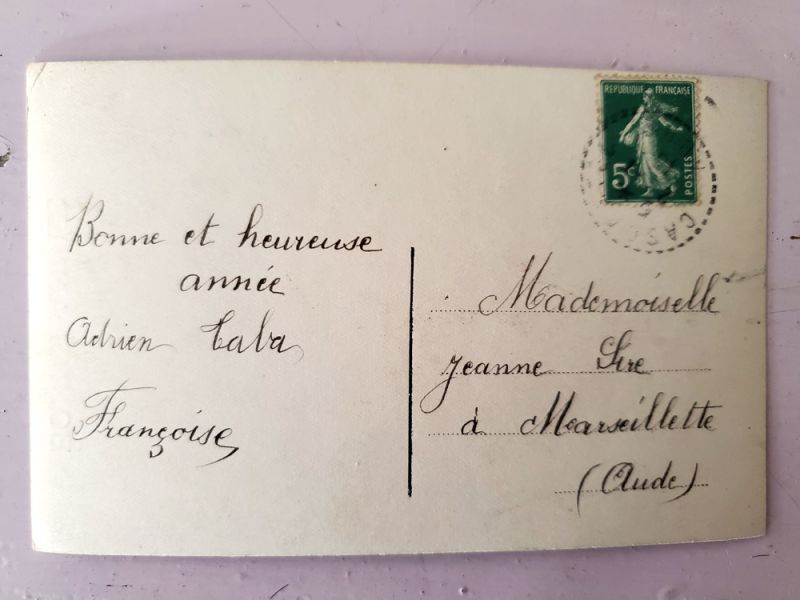 RÉPUBLIQUE FRANÇAISE
5c
POSTES
Bonne et heureuse
année
Adrien Caba
Françoise
Mademoiselle
Jeanne Sire
à Marseillette
(Aude)